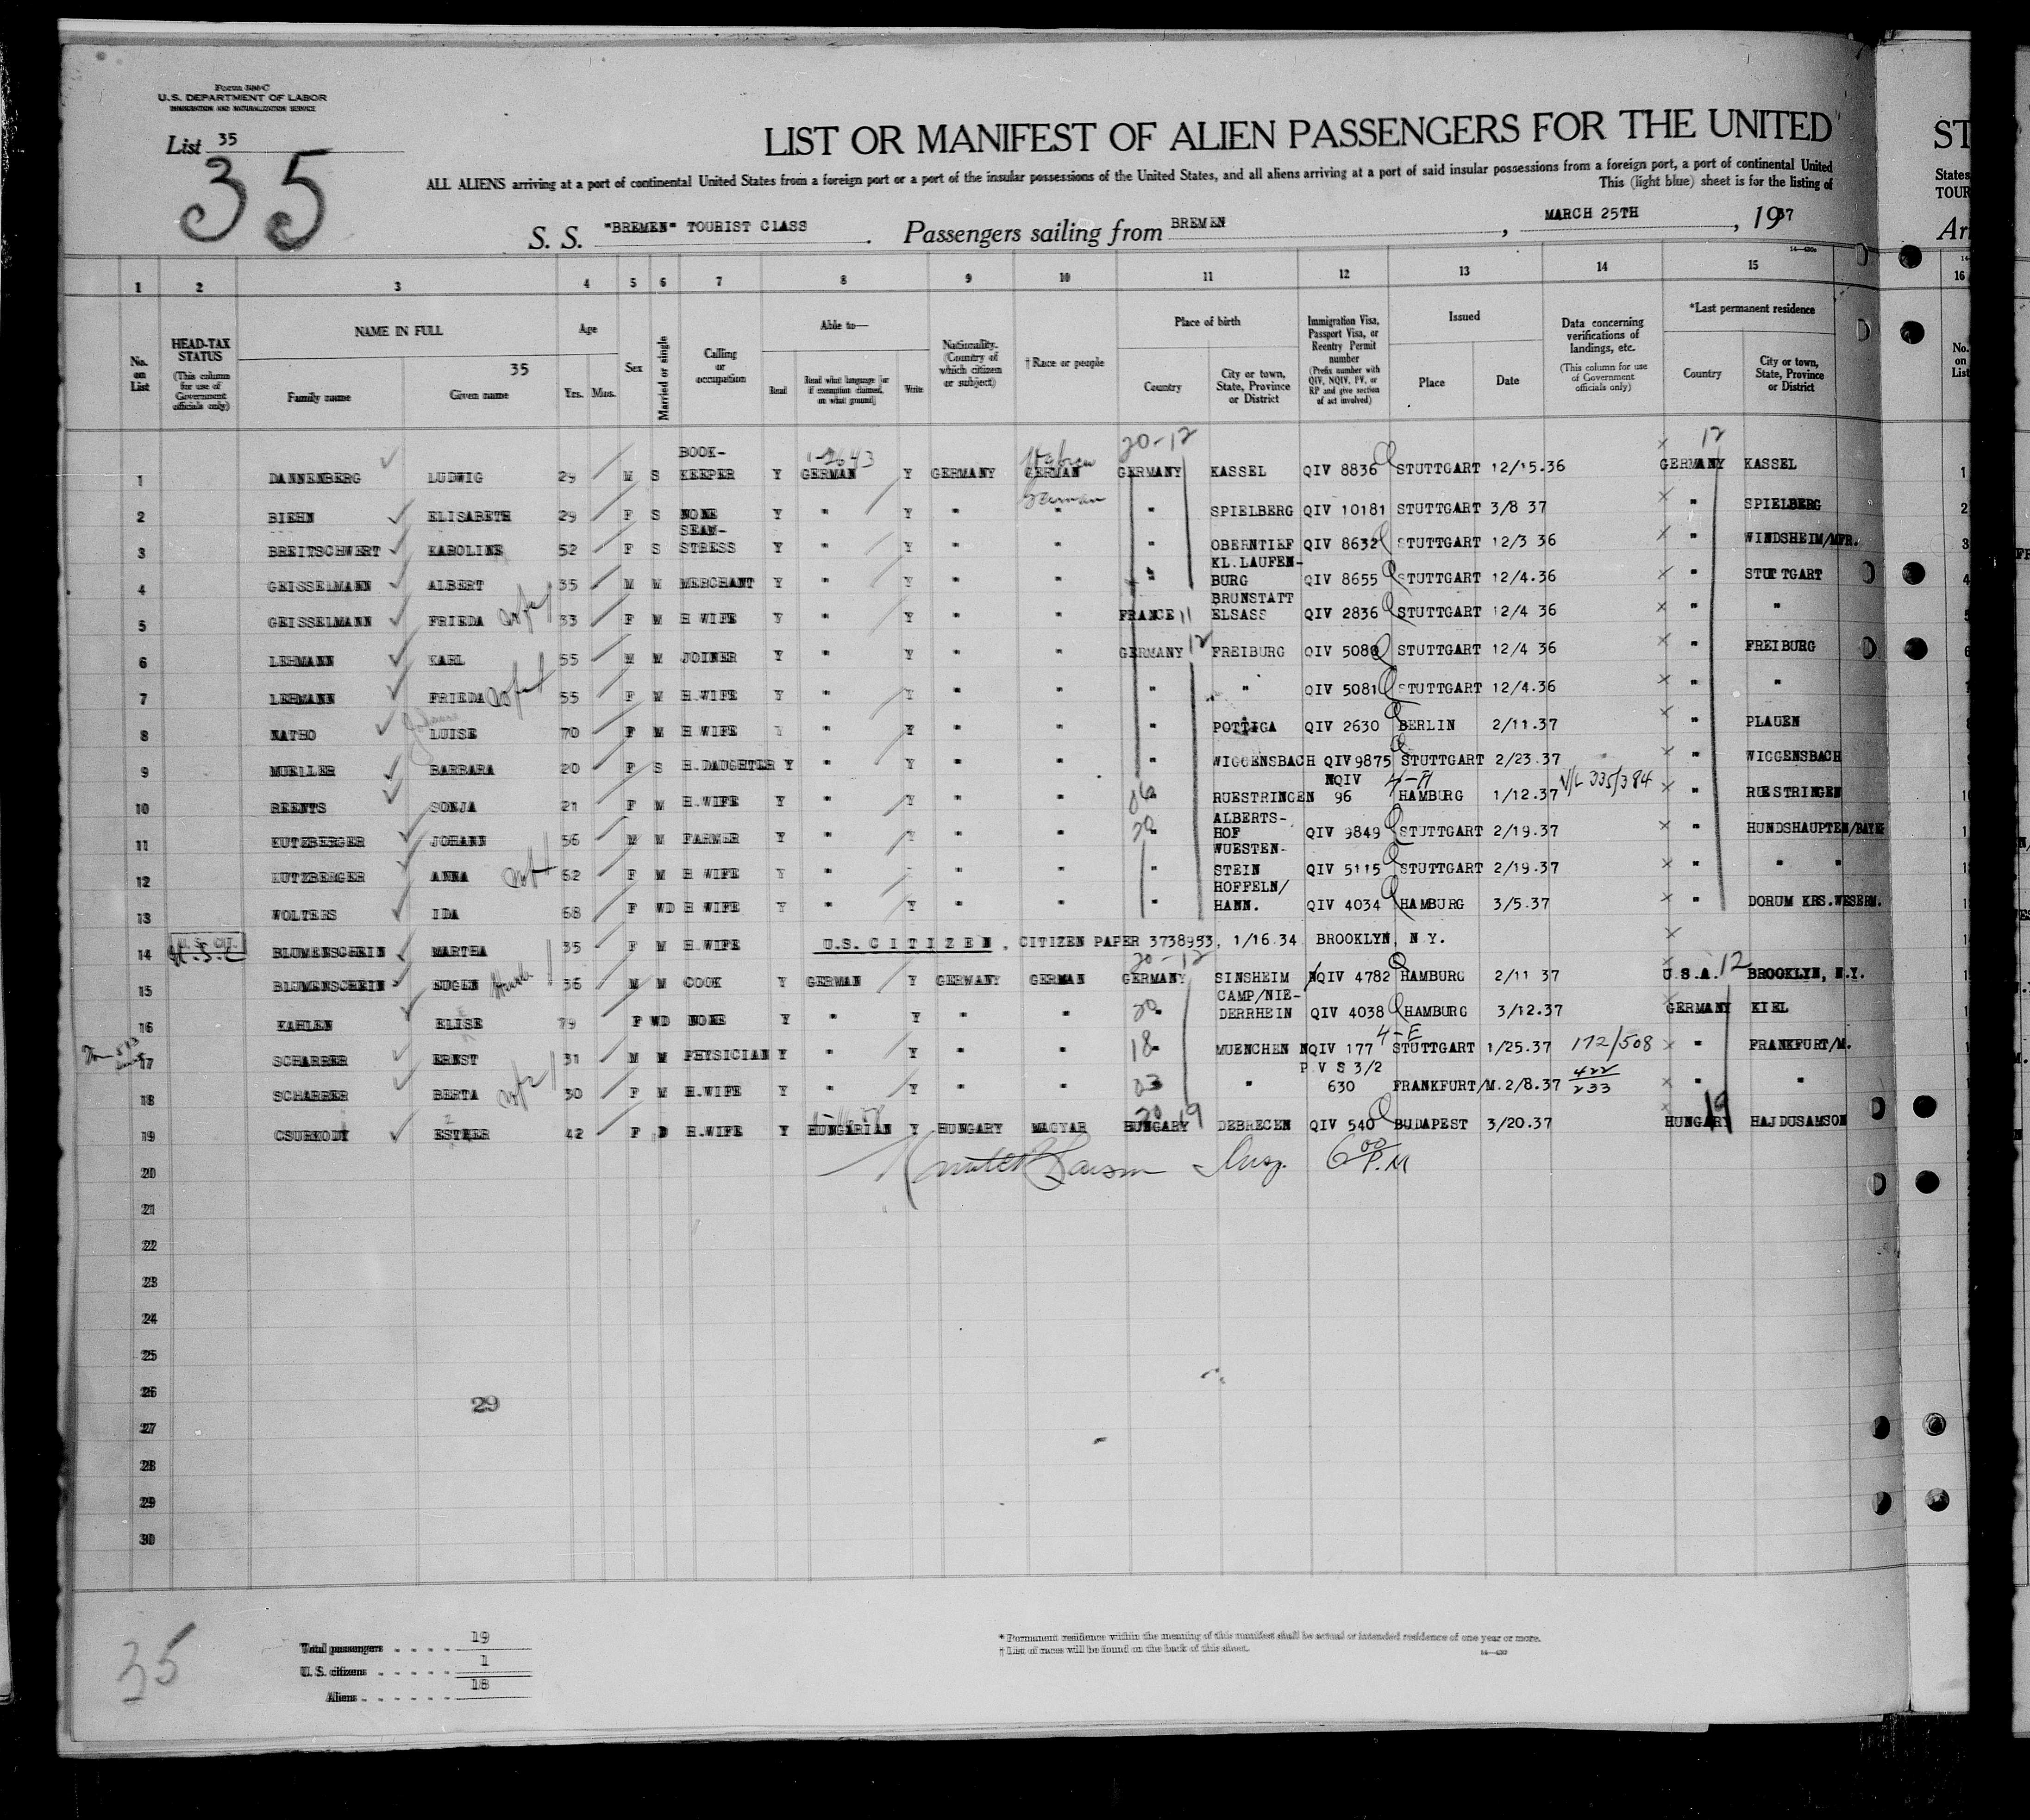 Form 500 C
U.S. DEPARTMENT OF LABOR
IMMIGRATION AND NATURALIZATION SERVICE
List 35
35
LIST OR MANIFEST OF ALIEN PASSENGERS FOR THE UNITED
ST
ALL ALIENS arriving at a port of continental United States from a foreign port or a port of the insular possessions of the United States, and all aliens arriving at a port of said insular possessions from a foreign port, a port of continental United
States
This (light blue) sheet is for the listing of
TOUR
S. S. "BREMEN" TOURIST CLASS . Passengers sailing from BREMEN , MARCH 25TH , 1937
Arr
1 2 3 4 5 6 7 8 9 10 11 12 13 14 15 16
No. on List
HEAD-TAX STATUS (This column for use of Government officials only)
NAME IN FULL 35 Family name Given name
Age Yrs. Mos.
Sex
Married or single
Calling or occupation
Able to— Read Read what language [or if exemption claimed, on what ground] Write
Nationality. (Country of which citizen or subject)
† Race or people
Place of birth Country City or town, State, Province or District
Immigration Visa, Passport Visa, or Reentry Permit number (Prefix number with QIV, NQIV, PV, or RP and give section of act involved)
Issued Place Date
Data concerning verifications of landings, etc. (This column for use of Government officials only)
*Last permanent residence Country City or town, State, Province or District
No. on List
20-12 12
1 DANNENBERG LUDWIG 29 M S BOOK-KEEPER Y GERMAN Y GERMANY GERMAN Hebrew GERMANY KASSEL QIV 8836 STUTTGART 12/15.36 GERMANY KASSEL
2 BIEHN ELISABETH 29 F S NONE Y " Y " " German " SPIELBERG QIV 10181 STUTTGART 3/8 37 " SPIELBERG
3 BREITSCHWERT KAROLINE 52 F S SEAM-STRESS Y " Y " " " OBERNTIEF QIV 8632 STUTTGART 12/3 36 " WINDSHEIM/MFR.
4 GEISSELMANN ALBERT 35 M M MERCHANT Y " Y " " " KL.LAUFEN-BURG QIV 8655 STUTTGART 12/4.36 " STUTTGART
5 GEISSELMANN FRIEDA 33 F M H WIFE Y " Y " " FRANCE 11 BRUNSTATT ELSASS QIV 2836 STUTTGART 12/4 36 " "
6 LEHMANN KARL 55 M M JOINER Y " Y " " GERMANY 12 FREIBURG QIV 5080 STUTTGART 12/4 36 " FREIBURG
7 LEHMANN FRIEDA 55 F M H.WIFE Y " Y " " " " QIV 5081 STUTTGART 12/4.36 " "
8 NATHO LUISE 70 F M H WIFE Y " Y " " " POTTIGA QIV 2630 BERLIN 2/11.37 " PLAUEN
9 MUELLER BARBARA 20 F S H.DAUGHTER Y " Y " " " WIGGENSBACH QIV 9875 STUTTGART 2/23.37 " WIGGENSBACH
10 REENTS SONJA 21 F M H.WIFE Y " Y " " " RUESTRINGEN NQIV 96 4-H HAMBURG 1/12.37 V/L 335/384 " RUESTRINGEN
11 KUTZBERGER JOHANN 56 M M FARMER Y " Y " " 20 " ALBERTS-HOF QIV 9849 STUTTGART 2/19.37 " HUNDSHAUPTEN/BAYE
12 KUTZBERGER ANNA 52 F M H WIFE Y " Y " " " WUESTEN-STEIN QIV 5115 STUTTGART 2/19.37 " " "
13 WOLTERS IDA 68 F WD H WIFE Y " Y " " " HOFFELN/HANN. QIV 4034 HAMBURG 3/5.37 " DORUM KRS.WESERM.
14 U. S. CIT. BLUMENSCHEIN MARTHA 35 F M H.WIFE U.S. CITIZEN, CITIZEN PAPER 3738953, 1/16.34 BROOKLYN, N.Y.
20-12
15 BLUMENSCHEIN EUGEN 36 M M COOK Y GERMAN Y GERMANY GERMAN GERMANY SINSHEIM NQIV 4782 HAMBURG 2/11 37 U.S.A. 12 BROOKLYN, N.Y.
16 KAHLEN ELISE 79 F WD NONE Y " Y " " 20 CAMP/NIE-DERRHEIN QIV 4038 HAMBURG 3/12.37 GERMANY KIEL
17 SCHARRER ERNST 31 M M PHYSICIAN Y " Y " " 18 " MUENCHEN NQIV 177 4-E STUTTGART 1/25.37 172/508 " FRANKFURT/M.
18 SCHARRER BERTA 30 F M H.WIFE Y " Y " " 03 " P V S 3/2 630 FRANKFURT/M. 2/8.37 422/233 " "
19 CSURKODY ESTHER 42 F D H.WIFE Y HUNGARIAN Y HUNGARY MAGYAR 20 19 HUNGARY DEBRECEN QIV 540 BUDAPEST 3/20.37 HUNGARY 19 HAJDUSAMSON
20 Larson Insp. 6 00 P.M
21
22
23
24
25
26
29
27
28
29
30
35
Total passengers . . . . . 19
U. S. citizens . . . . . 1
Aliens . . . . . . 18
* Permanent residence within the meaning of this manifest shall be actual or intended residence of one year or more.
† List of races will be found on the back of this sheet.
14—430